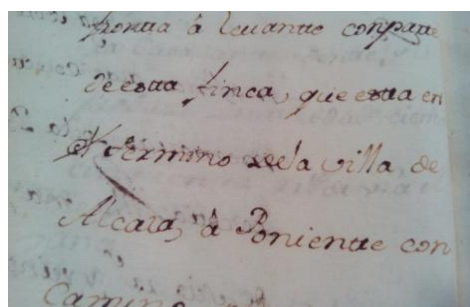 frontta â Levantte con partte
de estta finca, que estta en
el termino de la villa de
Alcala, â Ponientte con
Camino